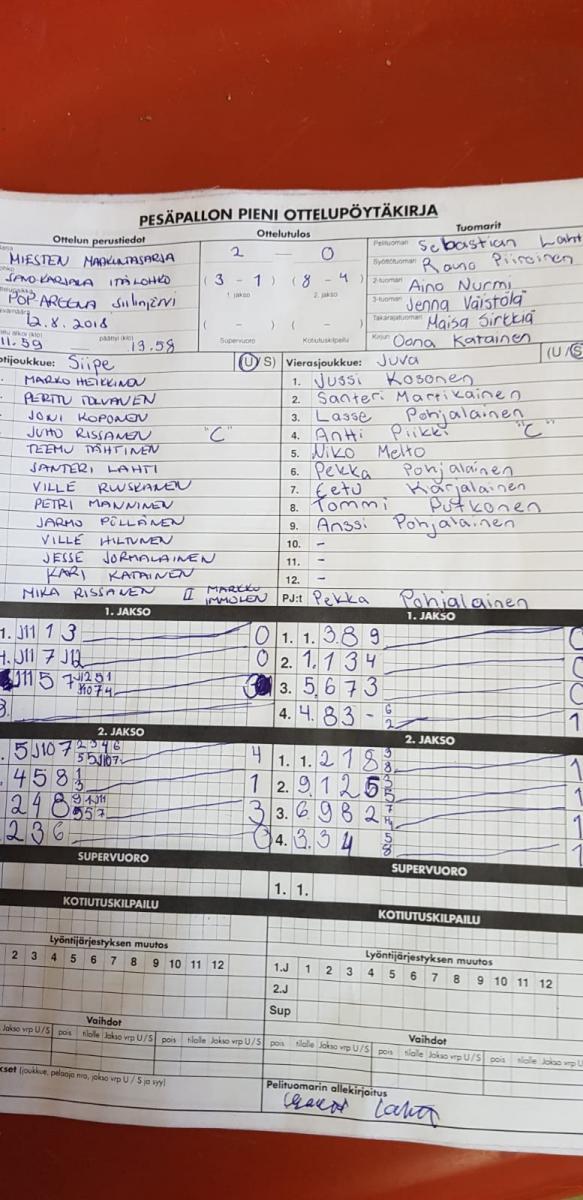 PESÄPALLON PIENI OTTELUPÖYTÄKIRJA
Ottelun perustiedot
Ottelutulos
Tuomarit
MIESTEN MAAKUNTASARJA
SAVO-KARJALA ITÄLOHKO
POP-AREENA SIILINJÄRVI
12.8.2018
11.59
päättyi (klo) 13.58
2 — 0
( 3 - 1 ) ( 8 - 4 )
1. jakso 2. jakso
( - ) ( - )
Supervuoro Kotiutuskilpailu
Pelituomari Sebastian Laht
Syöttötuomari Rauno Piiroinen
2-tuomari Aino Nurmi
3-tuomari Jenna Väistölä
Takarajatuomari Maisa Sirkkiä
Kirjuri Oona Katainen
otijoukkue: Siipe (U/S)
MARKO HEIKKINEN
PERTTU TOLVANEN
JONI KOPONEN
JUHO RISSANEN "C"
TEEMU TÄHTINEN
SANTERI LAHTI
VILLE RUUSKANEN
PETRI MANNINEN
JARMO PÖLLÄNEN
VILLE HILTUNEN
JESSE JORMALAINEN
KARI KATAINEN
MIKA RISSANEN II MARKKU IMMONEN
Vierasjoukkue: Juva (U/S
1. Jussi Kosonen
2. Santeri Martikainen
3. Lasse Pohjalainen
4. Antti Piikki "C"
5. Niko Melto
6. Pekka Pohjalainen
7. Eetu Karjalainen
8. Tommi Putkonen
9. Anssi Pohjalainen
10. -
11. -
12. -
PJ:t Pekka Pohjalainen
1. JAKSO
1. J11 1 3 0
J11 7 J12 0
J11 5 7 3
1. JAKSO
1. 1. 3 8 9
2. 1. 1 3 4
3. 5. 6 7 3
4. 4. 8 3 - 6 2 1
2. JAKSO
5 J10 7 4
4 5 8 1 3 1
2 4 8 3
2 3 6 0
2. JAKSO
1. 1. 2 1 8 1
2. 9. 1 2 5 1
3. 6. 9 8 2 1
4. 3. 3 4 5 8 1
SUPERVUORO
SUPERVUORO
1. 1.
KOTIUTUSKILPAILU
KOTIUTUSKILPAILU
Lyöntijärjestyksen muutos
2 3 4 5 6 7 8 9 10 11 12
Lyöntijärjestyksen muutos
1.J 1 2 3 4 5 6 7 8 9 10 11 12
2.J
Sup
Vaihdot
Jakso vrp U/S pois tilalle Jakso vrp U/S pois tilalle Jakso vrp U/S
Vaihdot
pois tilalle Jakso vrp U/S pois tilalle Jakso vrp U/S pois tilalle Jakso vrp U/S
kset (joukkue, pelaaja nro, jakso vrp U / S ja syy)
Pelituomarin allekirjoitus